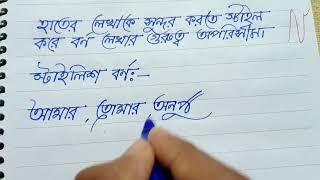 হাতের লেখাকে সুন্দর করতে স্টাইল
করে বর্ন লেখার গুরুত্ব অপরিসীম।
স্টাইলিশ বর্ন:-
আমার, তোমার, অনূ